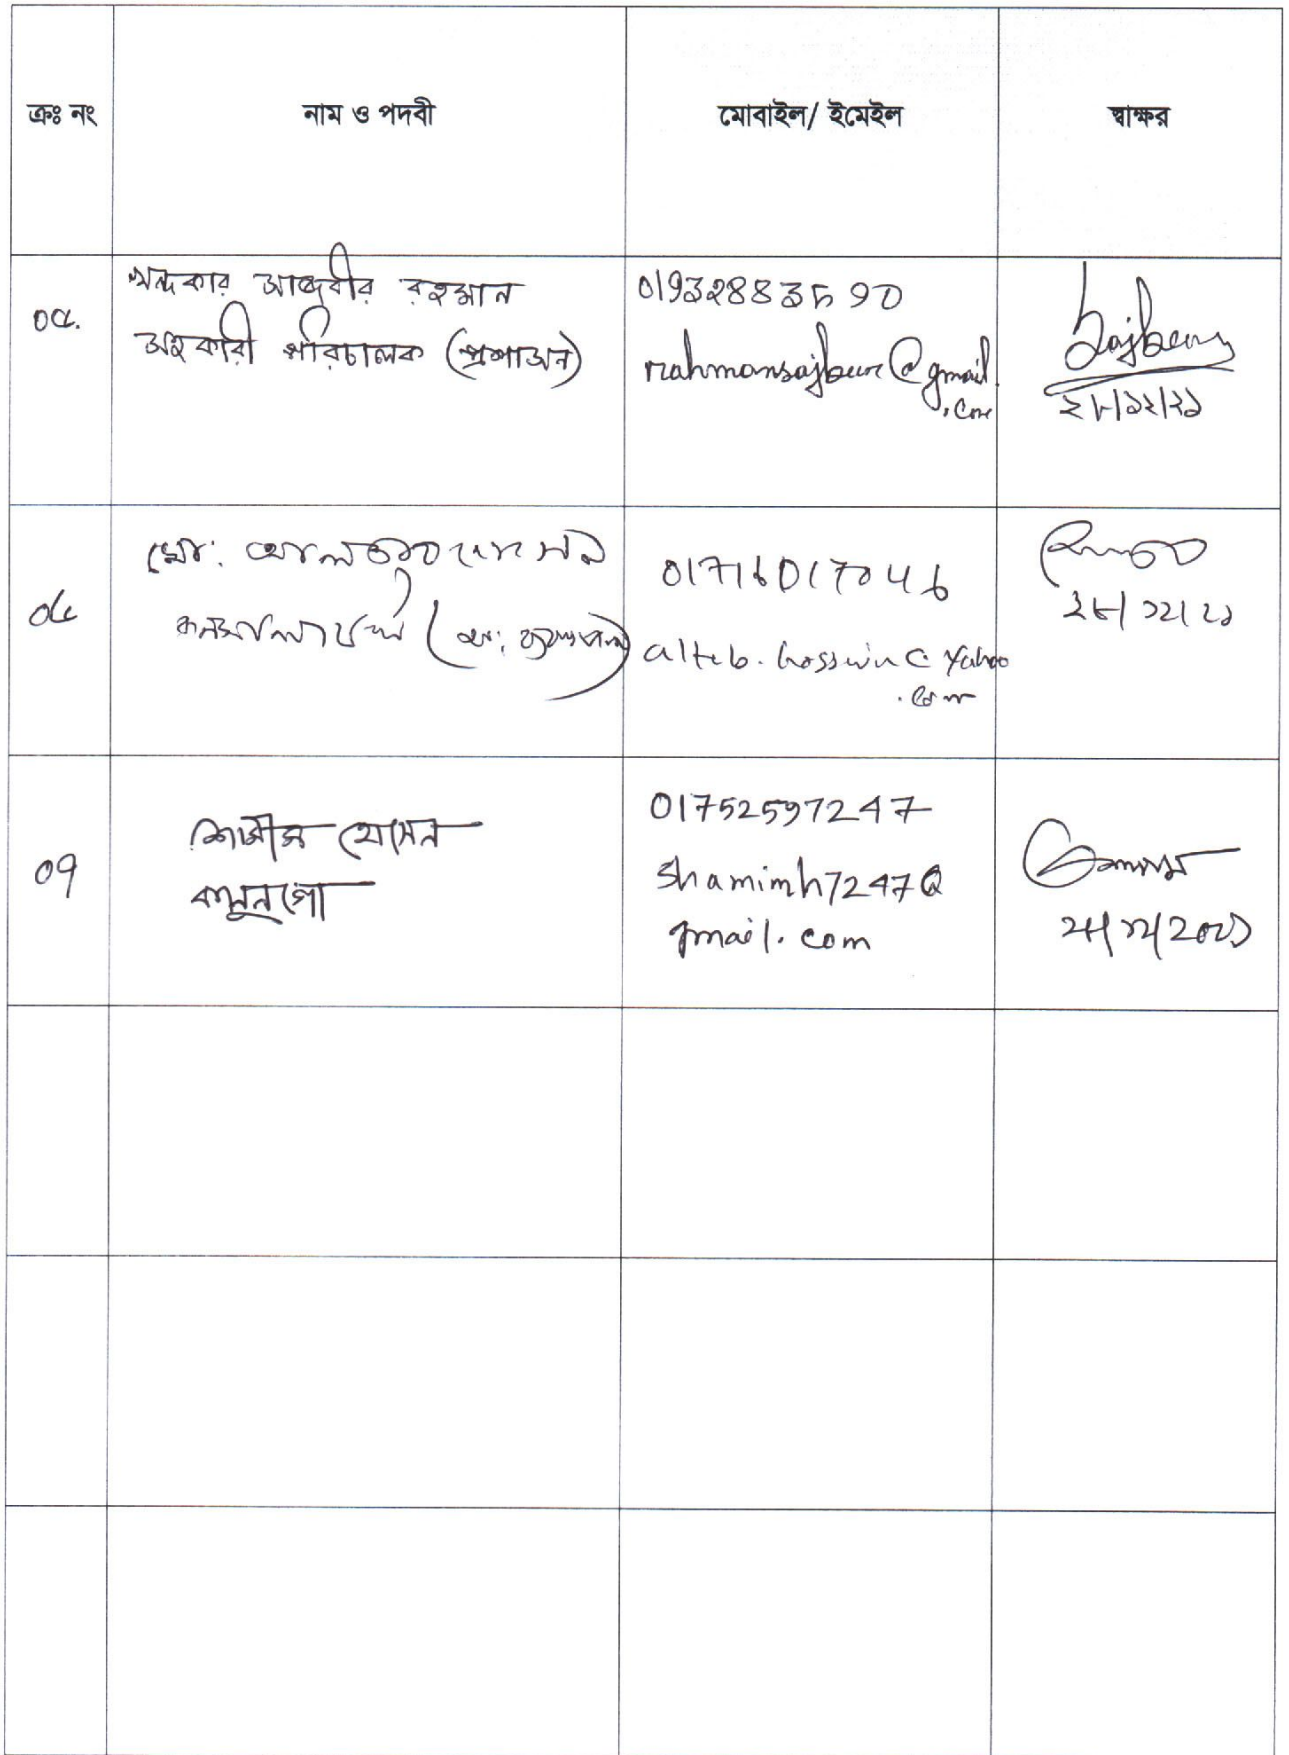 ক্রঃ নং নাম ও পদবী মোবাইল/ ইমেইল স্বাক্ষর
০৫. খন্দকার সাজবীর রহমান
সহকারী পরিচালক (প্রশাসন)
rahmansajbeer@gmail
.com
Sajbeer
২৮/১২/২১
০৬ মোঃ আলতাব হোসেন
কনসালটেন্ট
01716017046
altab.hossain@yahoo
.com
২৮/১২/২১
০৭ শামীম হোসেন
কানুনগো
01752597247
shamimh7247@
gmail.com
২৮/১২/2021